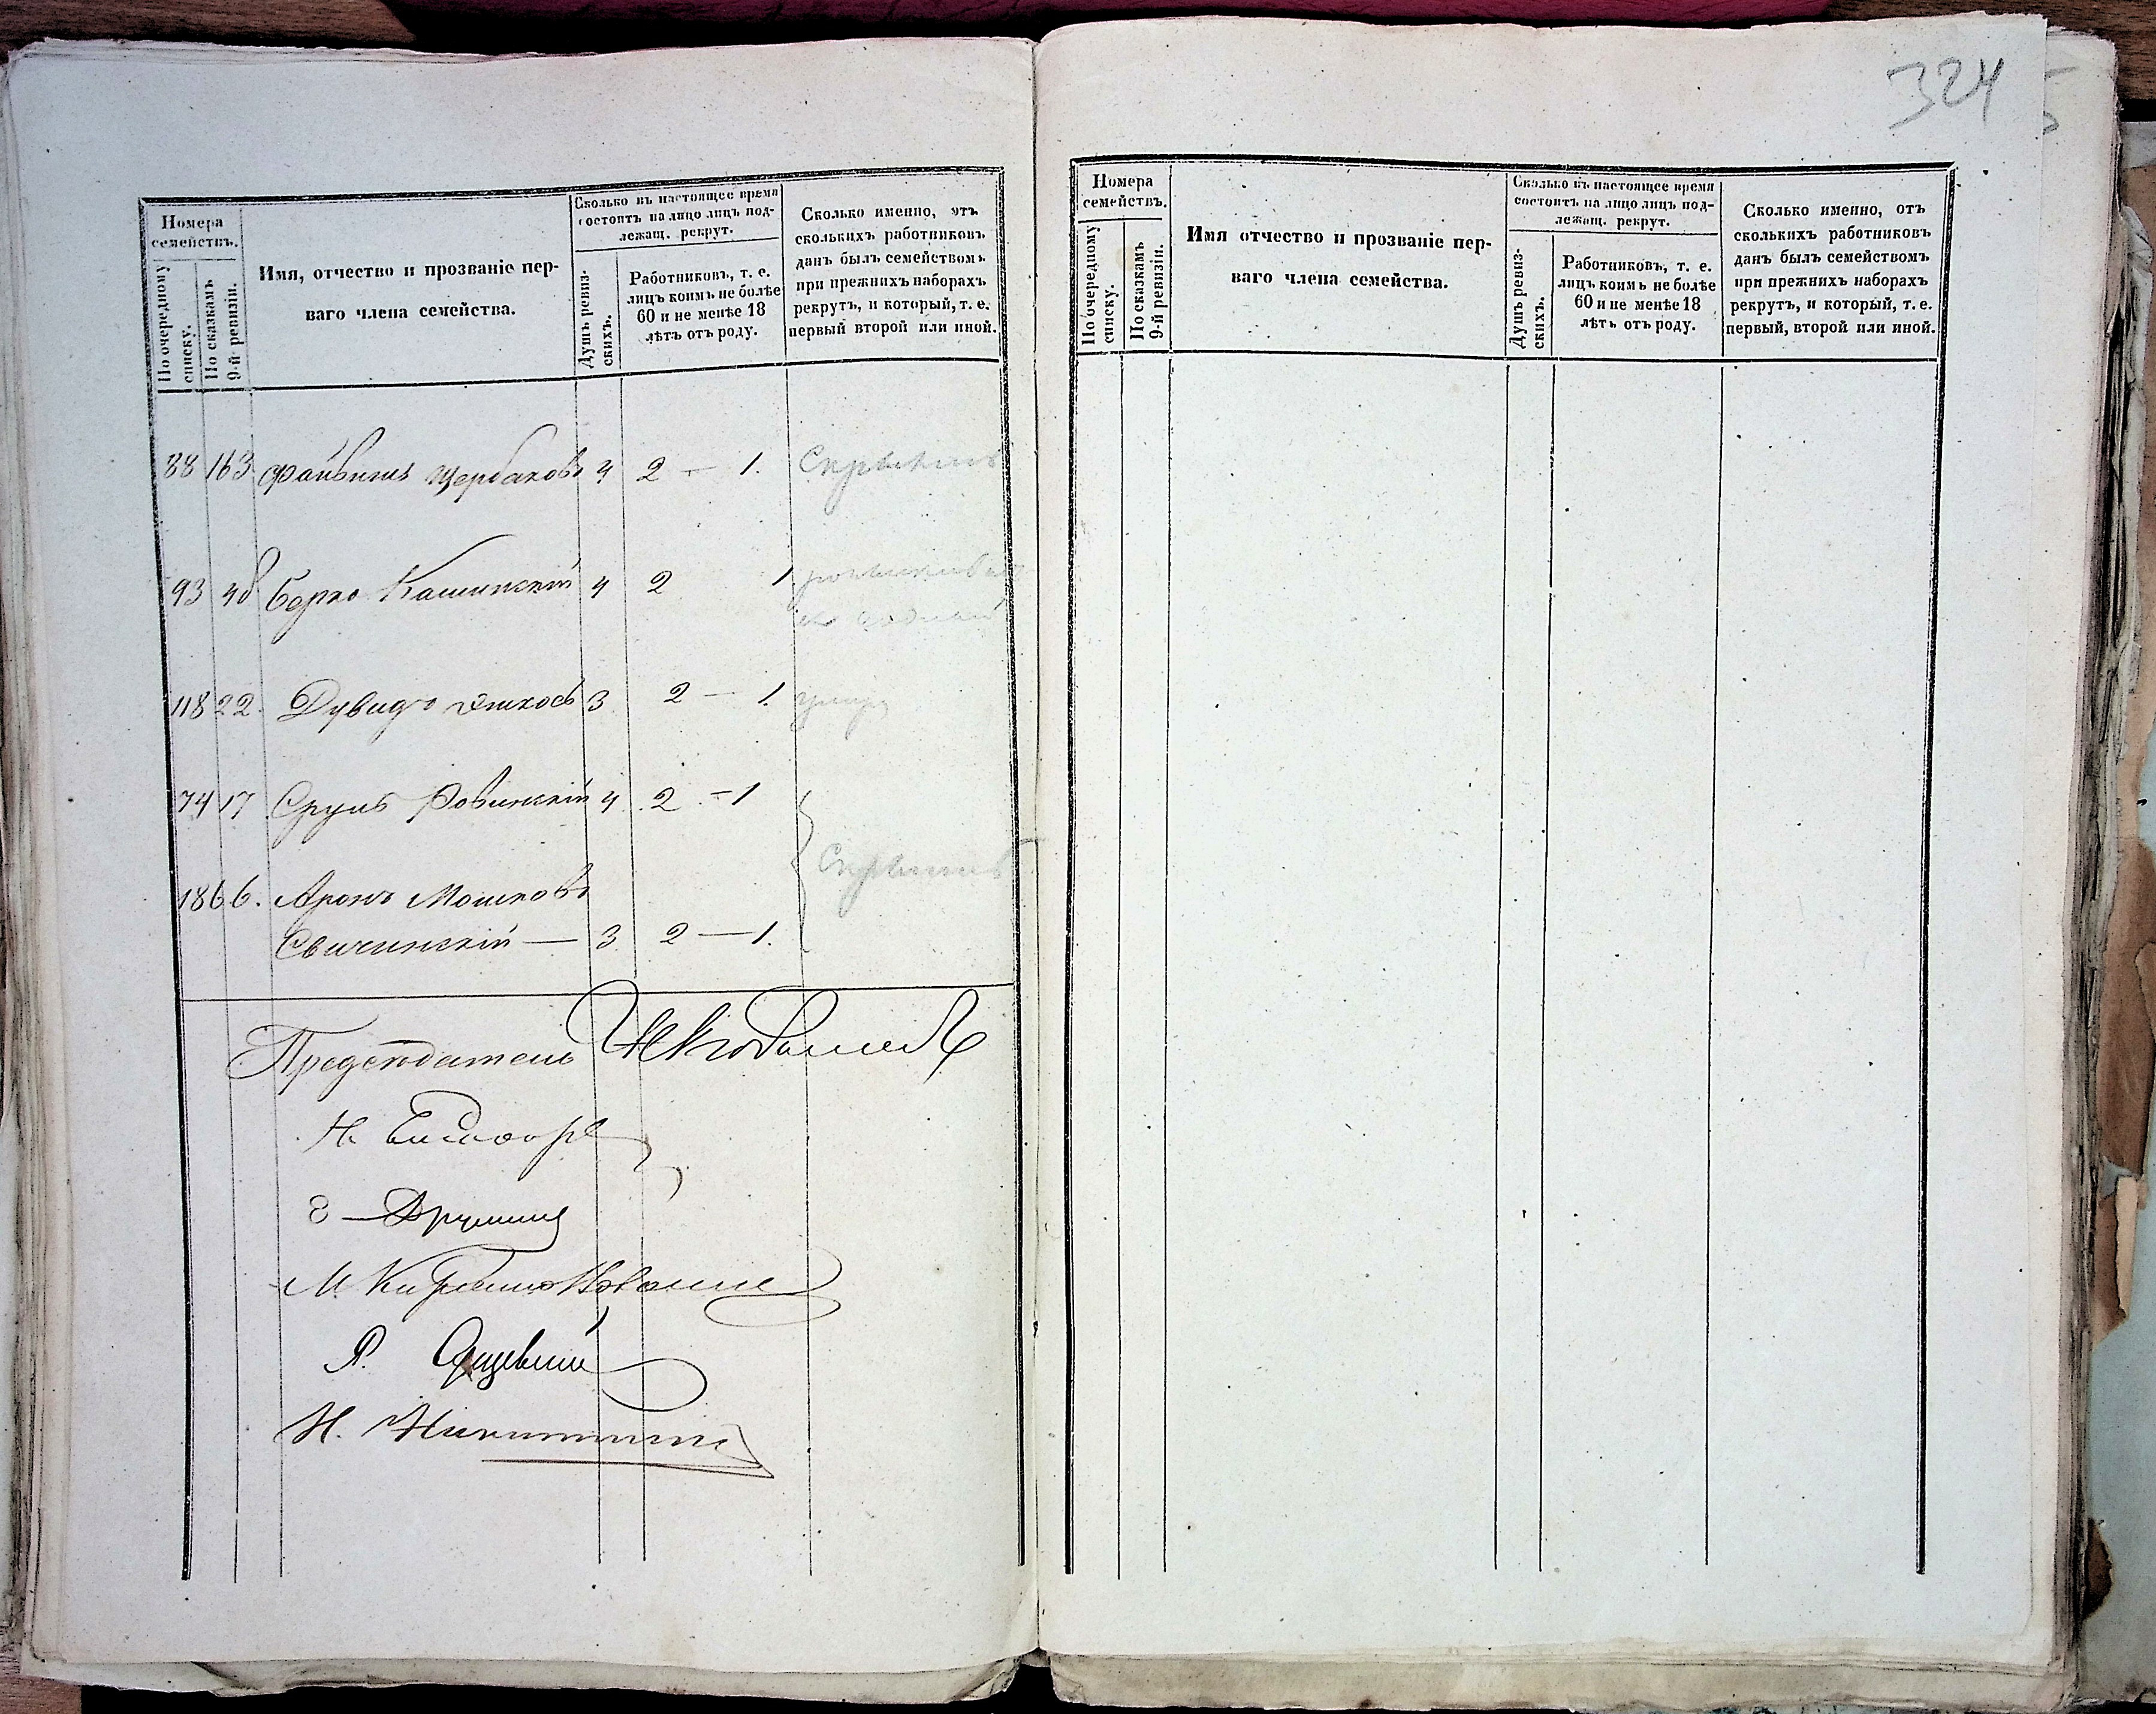 324
Номера
семействъ.
По очередному
списку.
По сказкамъ
9-й ревизіи.
Имя, отчество и прозваніе пер-
ваго члена семейства.
Сколько въ настоящее время
состоитъ на лицо лицъ под-
лежащ. рекрут.
Душъ ревиз-
скихъ.
Работниковъ, т. е.
лицъ коимъ не болѣе
60 и не менѣе 18
лѣтъ отъ роду.
Сколько именно, отъ
сколькихъ работниковъ
данъ былъ семействомъ
при прежнихъ наборахъ
рекрутъ, и который, т. е.
первый второй или иной.
88 163 Файвишъ Щербаковъ 4 2 — 1.
93 48 Берко Кашинскій 4 2 1
118 22. Дувидъ 3 2 — 1.
74 17 Сруль Ровинскій 4 2 — 1
186 6. Аронъ Мошковъ
Свичинскій — 3. 2 — 1.
Предсѣдатель
Н. Никитинъ
Номера
семействъ.
По очередному
списку.
По сказкамъ
9-й ревизіи.
Имя отчество и прозваніе пер-
ваго члена семейства.
Сколько въ настоящее время
состоитъ на лицо лицъ под-
лежащ. рекрут.
Душъ ревиз-
скихъ.
Работниковъ, т. е.
лицъ коимъ не болѣе
60 и не менѣе 18
лѣтъ отъ роду.
Сколько именно, отъ
сколькихъ работниковъ
данъ былъ семействомъ
при прежнихъ наборахъ
рекрутъ, и который, т. е.
первый, второй или иной.